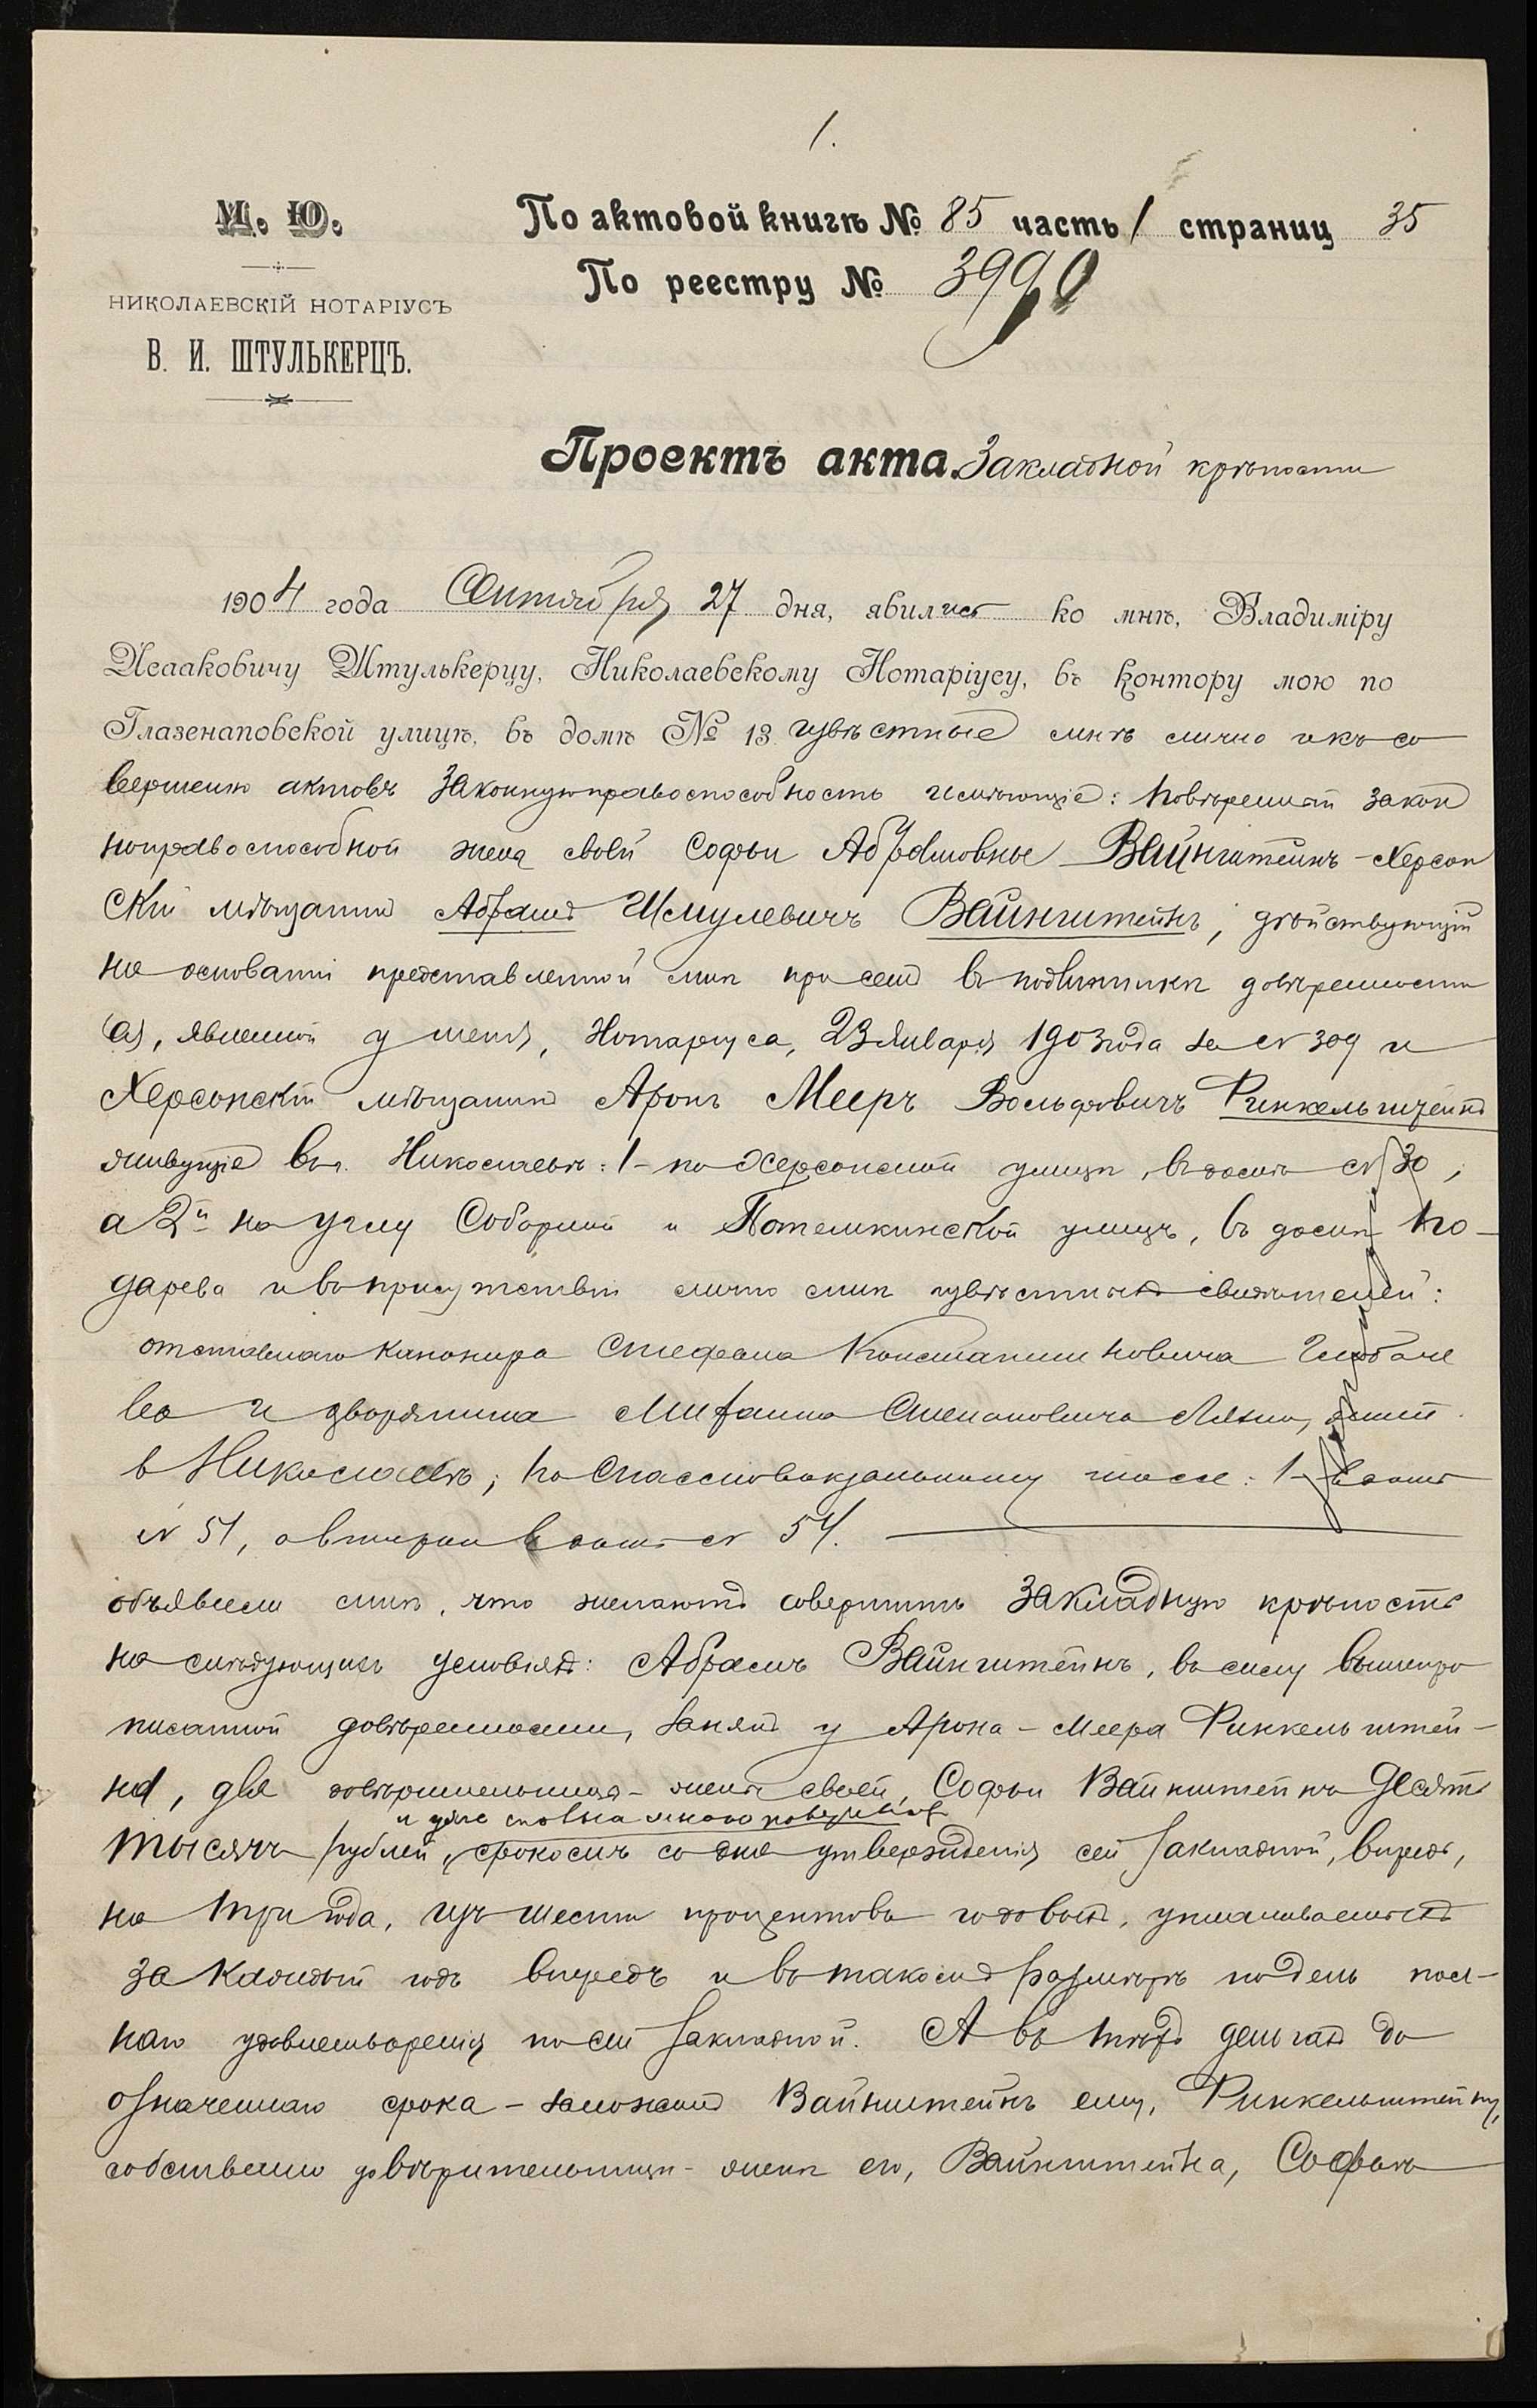 1.
М. Ю.
По актовой книгѣ № 85 часть 1 страниц 35
По реестру № 3990
НИКОЛАЕВСКІЙ НОТАРІУСЪ
В. И. ШТУЛЬКЕРЦЪ.
Проектъ акта. Закладной крѣпости
1904 года Сентября 27 дня, явились ко мнѣ, Владиміру
Исааковичу Штулькерцу, Николаевскому Нотаріусу, въ контору мою по
Глазенаповской улицѣ, въ домѣ № 13 извѣстные мнѣ лично и къ со
вершенію актовъ законную правоспособность имѣющіе: повѣренный закон
ноправоспособной жены своей Софьи Абрамовны Вайнштейнъ - Херсон
скій мѣщанинъ Абрамъ Шмулевичъ Вайнштейнъ, дѣйствующій
на основаніи представленной мнѣ при семъ въ подлинникѣ довѣренности
(а), явленной у меня, Нотаріуса, 23 Января 1903 года за № 309 и
Херсонскій мѣщанинъ Аронъ Мееръ Вольфовичъ Финкельштейнъ
живущіе въ г. Николаевѣ: 1- по Херсонской улицѣ, въ домѣ № 30,
а 2й на углу Соборной и Потемкинской улицъ, въ домѣ
и въ присутствіи лично мнѣ извѣстныхъ свидѣтелей:
отставного канонира Стефана Константиновича
и дворянина Митрофана Степановича
в Николаевѣ, по шоссе: 1- в домѣ
№ 51, а второй в домѣ № 54.
объявили мнѣ, что желаютъ совершить закладную крѣпость
на слѣдующихъ условіяхъ: Абрамъ Вайнштейнъ, въ силу вышепро
писанной довѣренности, занялъ у Арона - Меера Финкельштей-
на, для довѣрительницы - жены своей, Софьи Вайнштейнъ десять
тысячъ рублей, срокомъ со дня утвержденія сей закладной, впредь,
на три года, изъ шести процентовъ годовыхъ, уплачиваемыхъ
за каждый годъ впередъ и въ такомъ размѣрѣ по день пол-
наго удовлетворенія по сей закладной. А въ тѣхъ деньгахъ до
означеннаго срока - заложилъ Вайнштейнъ ему, Финкельштейну,
собственно довѣрительницы - жены его, Вайнштейна, Софьи